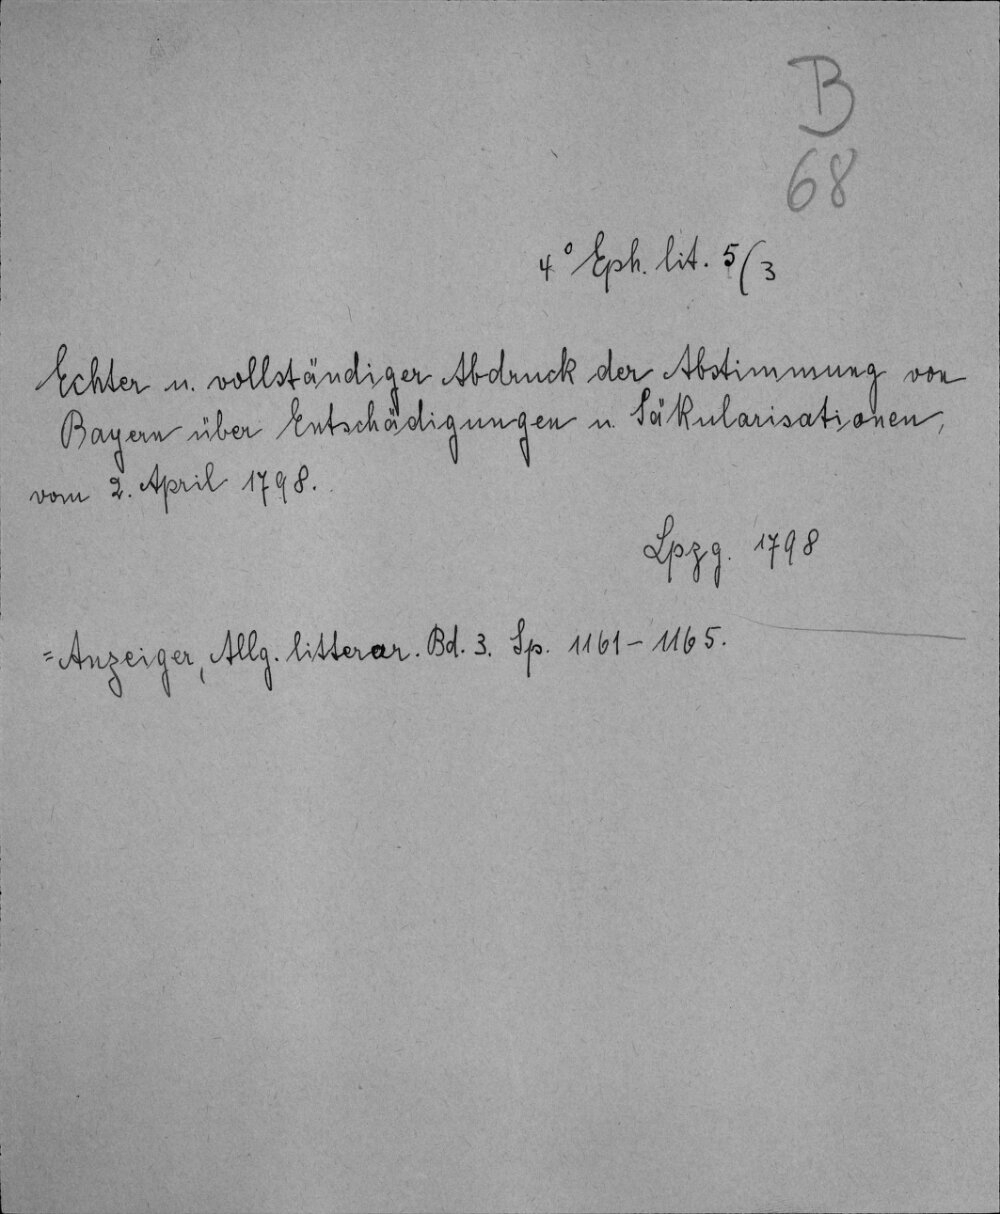 B
68
4° Eph. lit. 5/3
Echter u. vollständiger Abdruck der Abstimmung von
Bayern über Entschädigungen u. Säkularisationen,
vom 2. April 1798.
Lpzg. 1798
= Anzeiger, Allg. litterar. Bd. 3. Sp. 1161-1165.